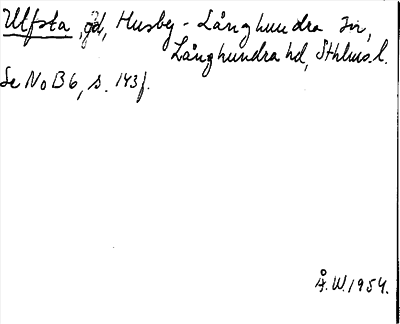 Ulfsta, gd, Husby-Långhundra sn,
Långhundra hd, Sthlms. l.
Se NoB 6, s. 143 f.
Å. W. 1954.